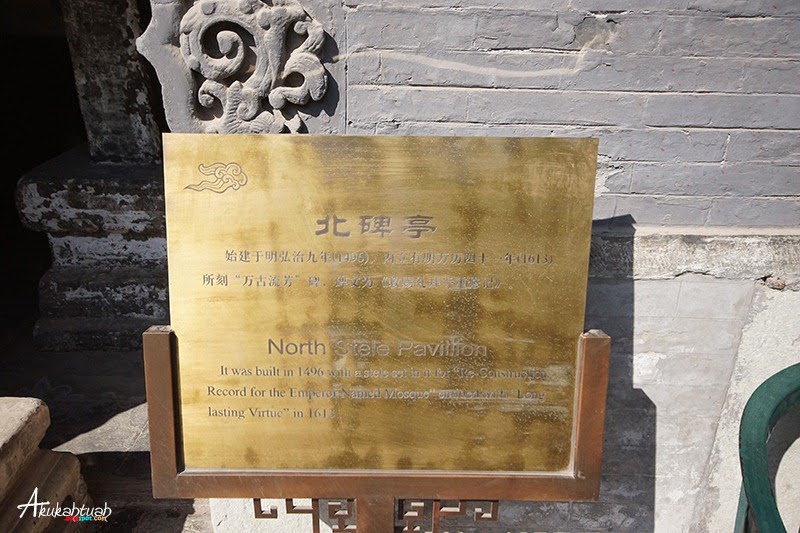 北碑亭
始建于明弘治九年(1496)，内立有明万历四十一年(1613)
所刻“万古流芳”碑，
North Stele Pavillion
It was built in 1496 with a stele set in it for "Re-Construction
Record for the Emperor Named Mosque" entitled with "Long
lasting Virtue" in 1613.
Akukahtuah